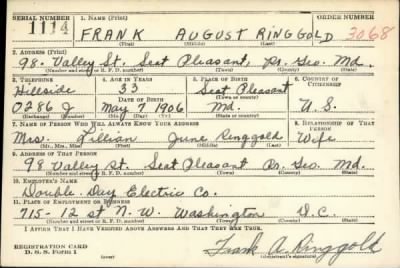 SERIAL NUMBER 1. NAME (Print) ORDER NUMBER
1114 FRANK AUGUST RINGGOLD 3068
(First) (Middle) (Last)
2. ADDRESS (Print)
98 Valley St. Seat Pleasant, Pr. Geo. Md.
(Number and street or R. F. D. number) (Town) (County) (State)
3. TELEPHONE 4. AGE IN YEARS 5. PLACE OF BIRTH 6. COUNTRY OF CITIZENSHIP
Hillside 33 Seat Pleasant
DATE OF BIRTH (Town or county)
0286 J May 7 1906 Md. U.S.
(Exchange) (Number) (Mo.) (Day) (Yr.) (State or country)
7. NAME OF PERSON WHO WILL ALWAYS KNOW YOUR ADDRESS 8. RELATIONSHIP OF THAT PERSON
Mrs. Lillian June Ringgold Wife
(Mr., Mrs., Miss) (First) (Middle) (Last)
9. ADDRESS OF THAT PERSON
98 Valley St. Seat Pleasant Pr. Geo. Md.
(Number and street or R. F. D. number) (Town) (County) (State)
10. EMPLOYER'S NAME
Double Duy Electric Co.
11. PLACE OF EMPLOYMENT OR BUSINESS
715-12 st N.W. Washington D.C.
(Number and street or R. F. D. number) (Town) (County) (State)
I AFFIRM THAT I HAVE VERIFIED ABOVE ANSWERS AND THAT THEY ARE TRUE.
REGISTRATION CARD
D. S. S. Form 1 Frank A. Ringgold
(Registrant's signature)